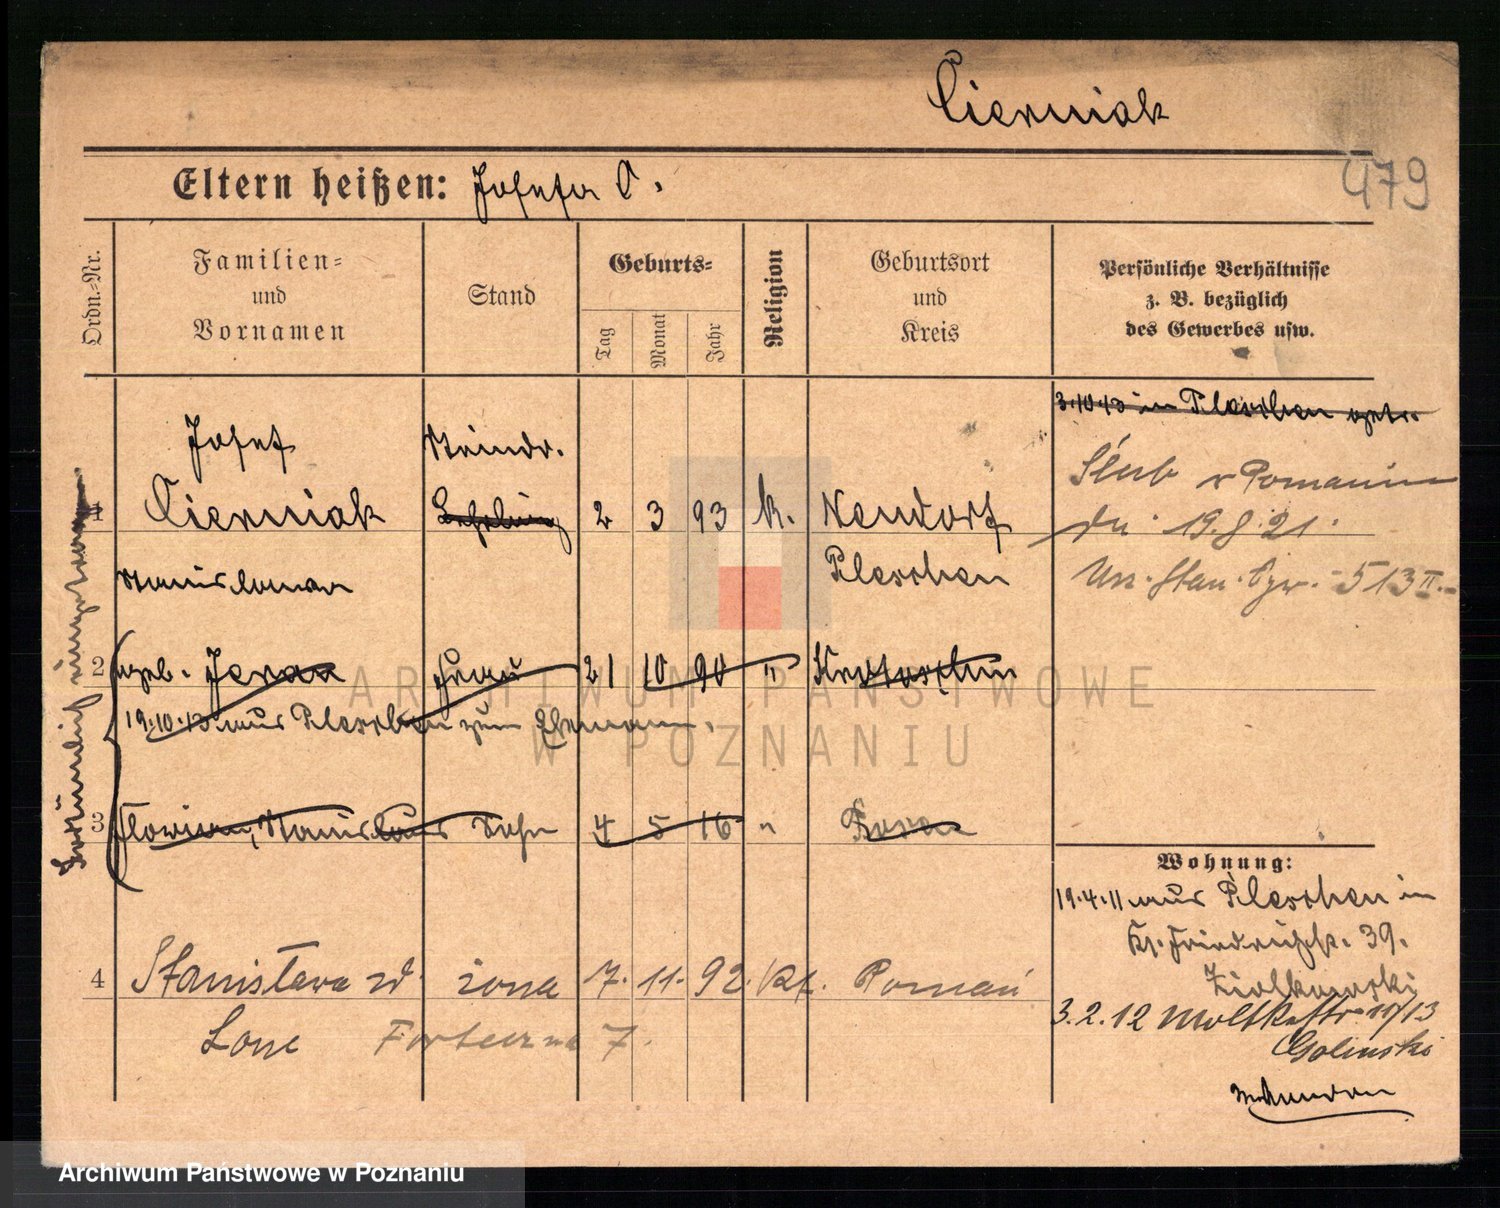 Cierniak
479
Eltern heißen: Josefa C.
Ordn.-Nr.
Familien- und Vornamen
Stand
Geburts-
Tag
Monat
Jahr
Religion
Geburtsort und Kreis
Persönliche Verhältnisse
z. B. bezüglich
des Gewerbes usw.
3.10.13 in Pleschen getr.
Josef Steindr.
1 Cierniak Lehrling 2 3 93 k. Neudorf
Pleschen
Ślub w Poznaniu
dn. 19.8.21.
Urz. Stan. 513 II.
Stanislawa
2 geb. Frau 21 10 90 " Krotoschin
19.10.13 aus Pleschen zum Ehemann.
3 Florian, Stanislaus Sohn 4 5 16 " Posen
4 Stanisława zd żona 7. 11. 92. kt. Poznań
Forteczna 7.
Wohnung:
19.4.11 aus Pleschen in
Kr. Friedrichstr. 39.
Ziolkowski
3.2.12 Moltkestr. 11/13
Golinski
ARCHIWUM PAŃSTWOWE
W POZNANIU
Archiwum Państwowe w Poznaniu